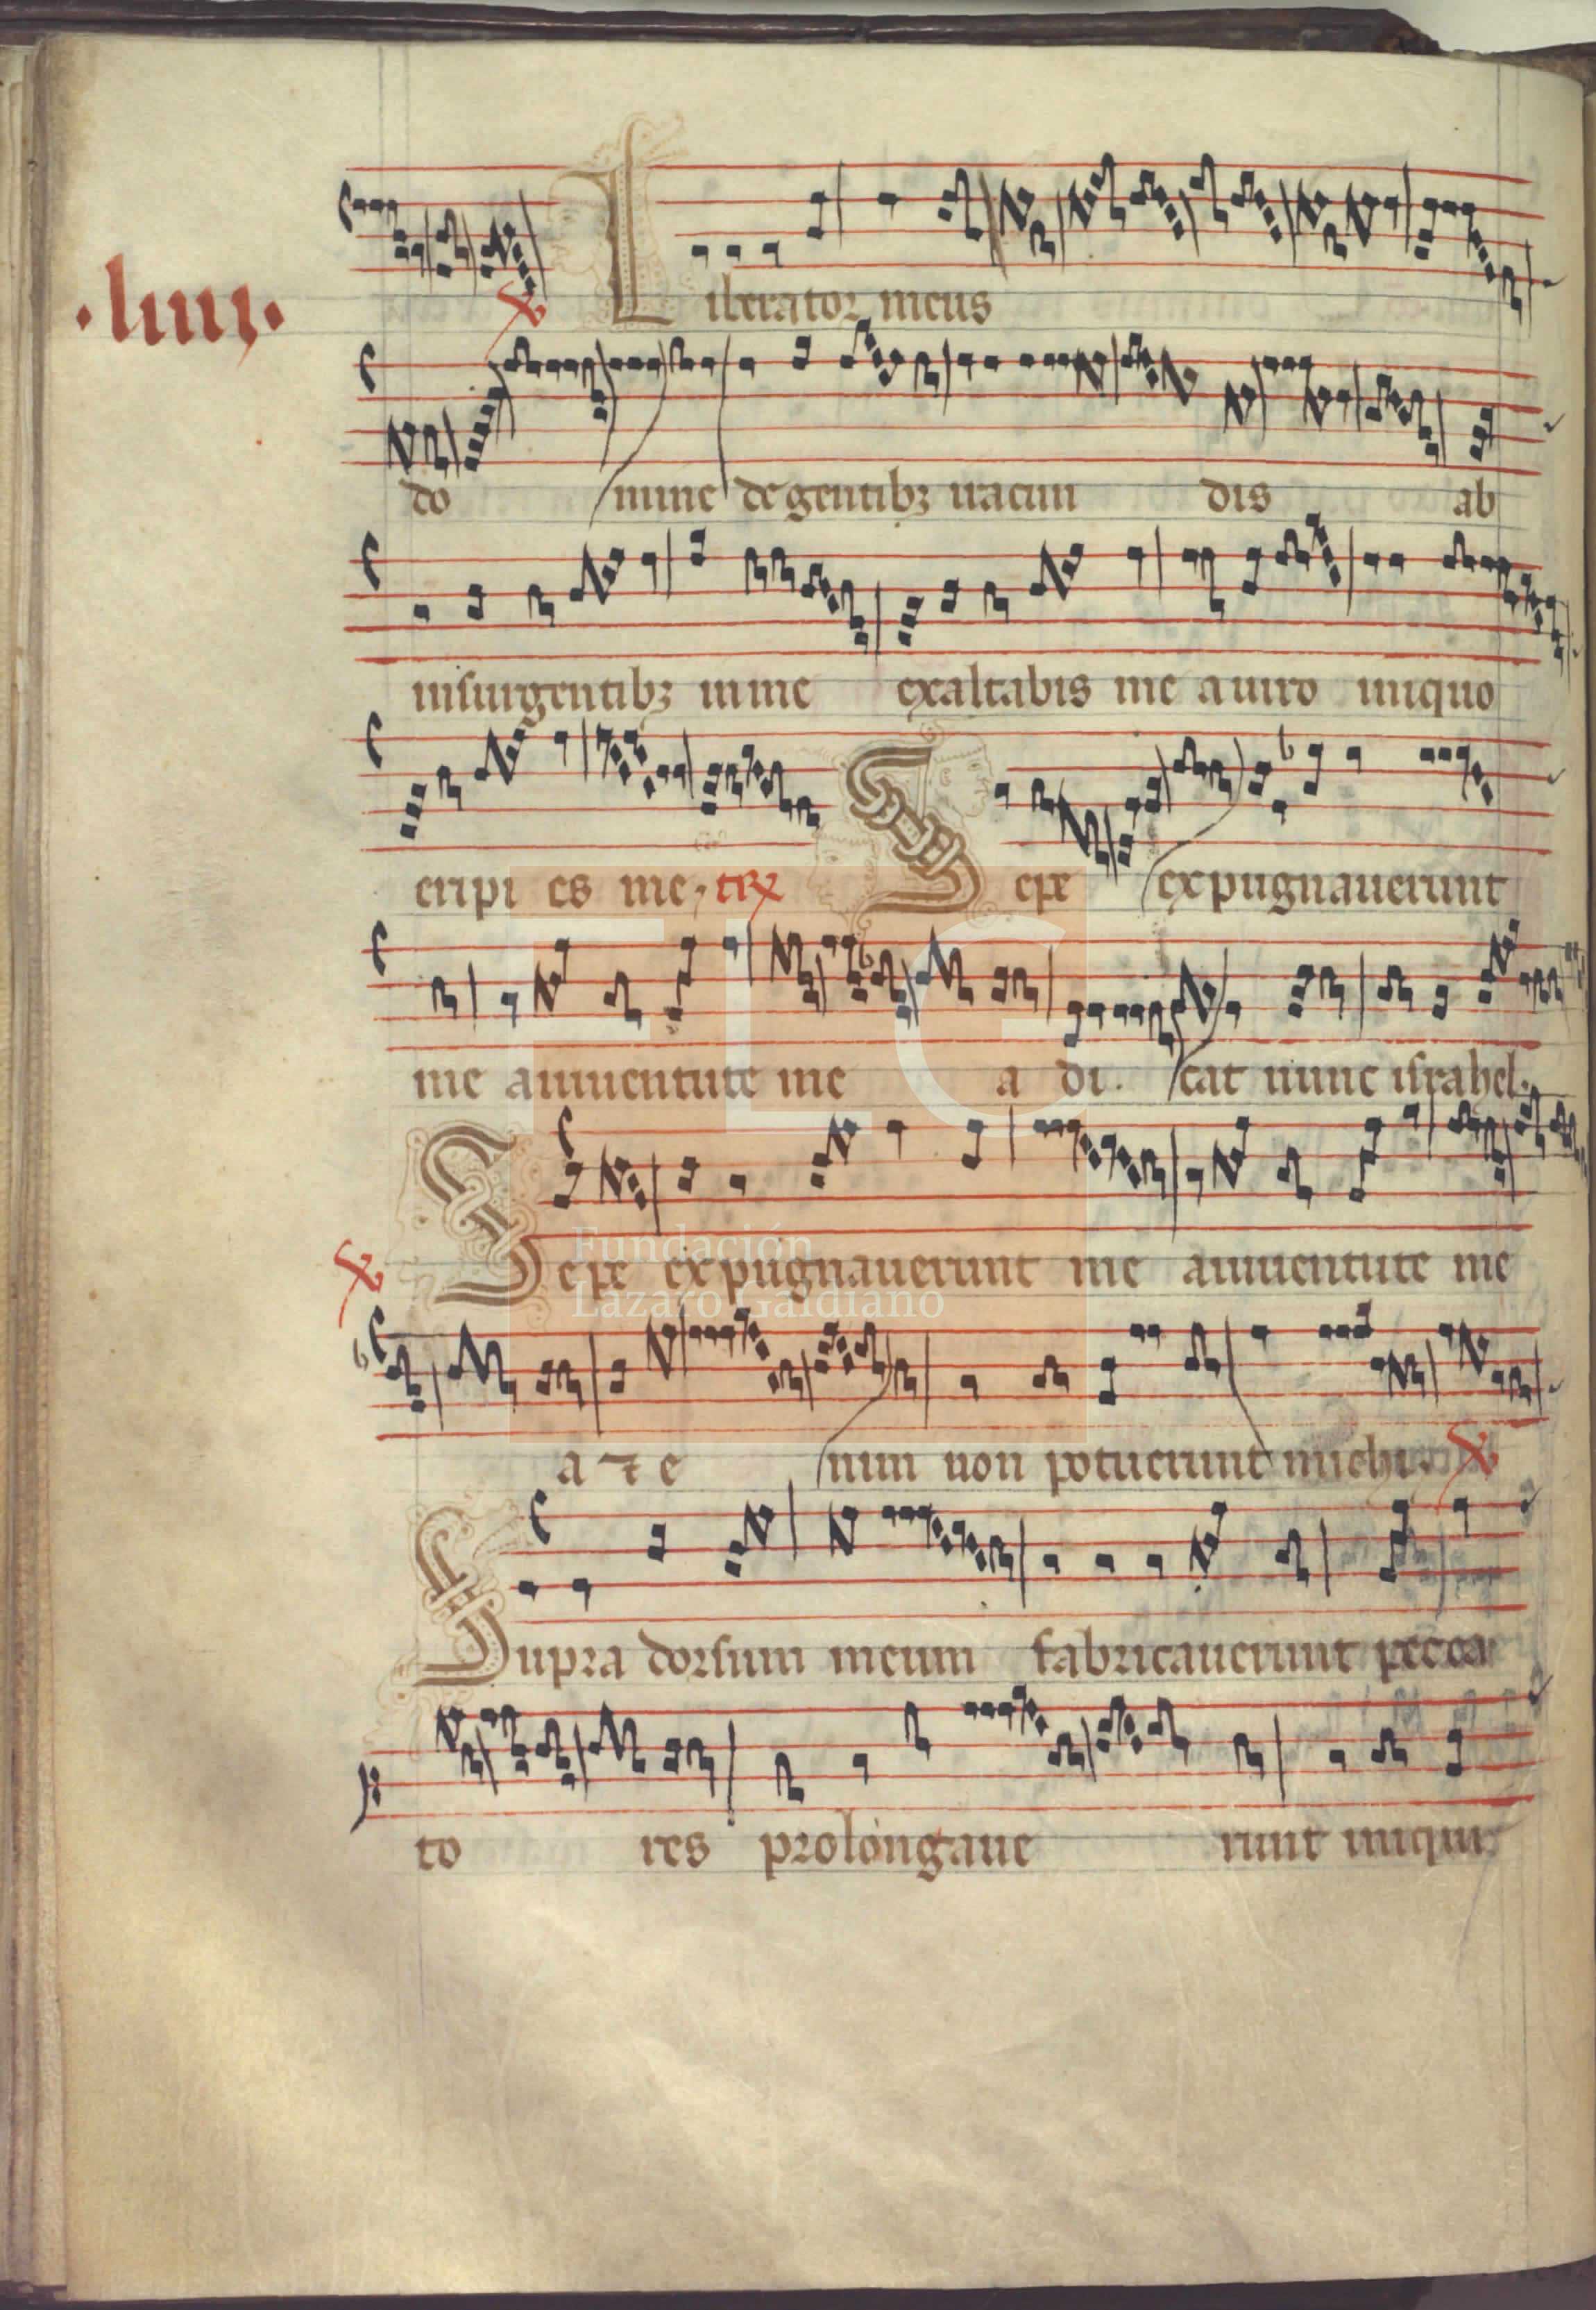 ·liiii·
℣ Liberator meus
do nunc de gentibꝫ iracun dis ab
insurgentibꝫ in me exaltabis me a uiro iniquo
eripi es me. tr̄
Sepe expugnauerunt
me a iuuentute me a di. cat nunc israhel.
℣ Sepe expugnauerunt me a iuuentute me
a ⁊ e nim non potuerunt michi. ℣
Supra dorsum meum fabricauerunt pecca
to res prolongaue runt iniqui
FLG
Fundación
Lázaro Galdiano